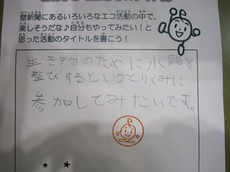 壁新聞にあるいろいろなエコ活動の中で、
楽しそうだな♪自分もやってみたい！と
思った活動のタイトルを書こう！
生き物のために水路を
整びするというとりくみに
参加してみたいです。